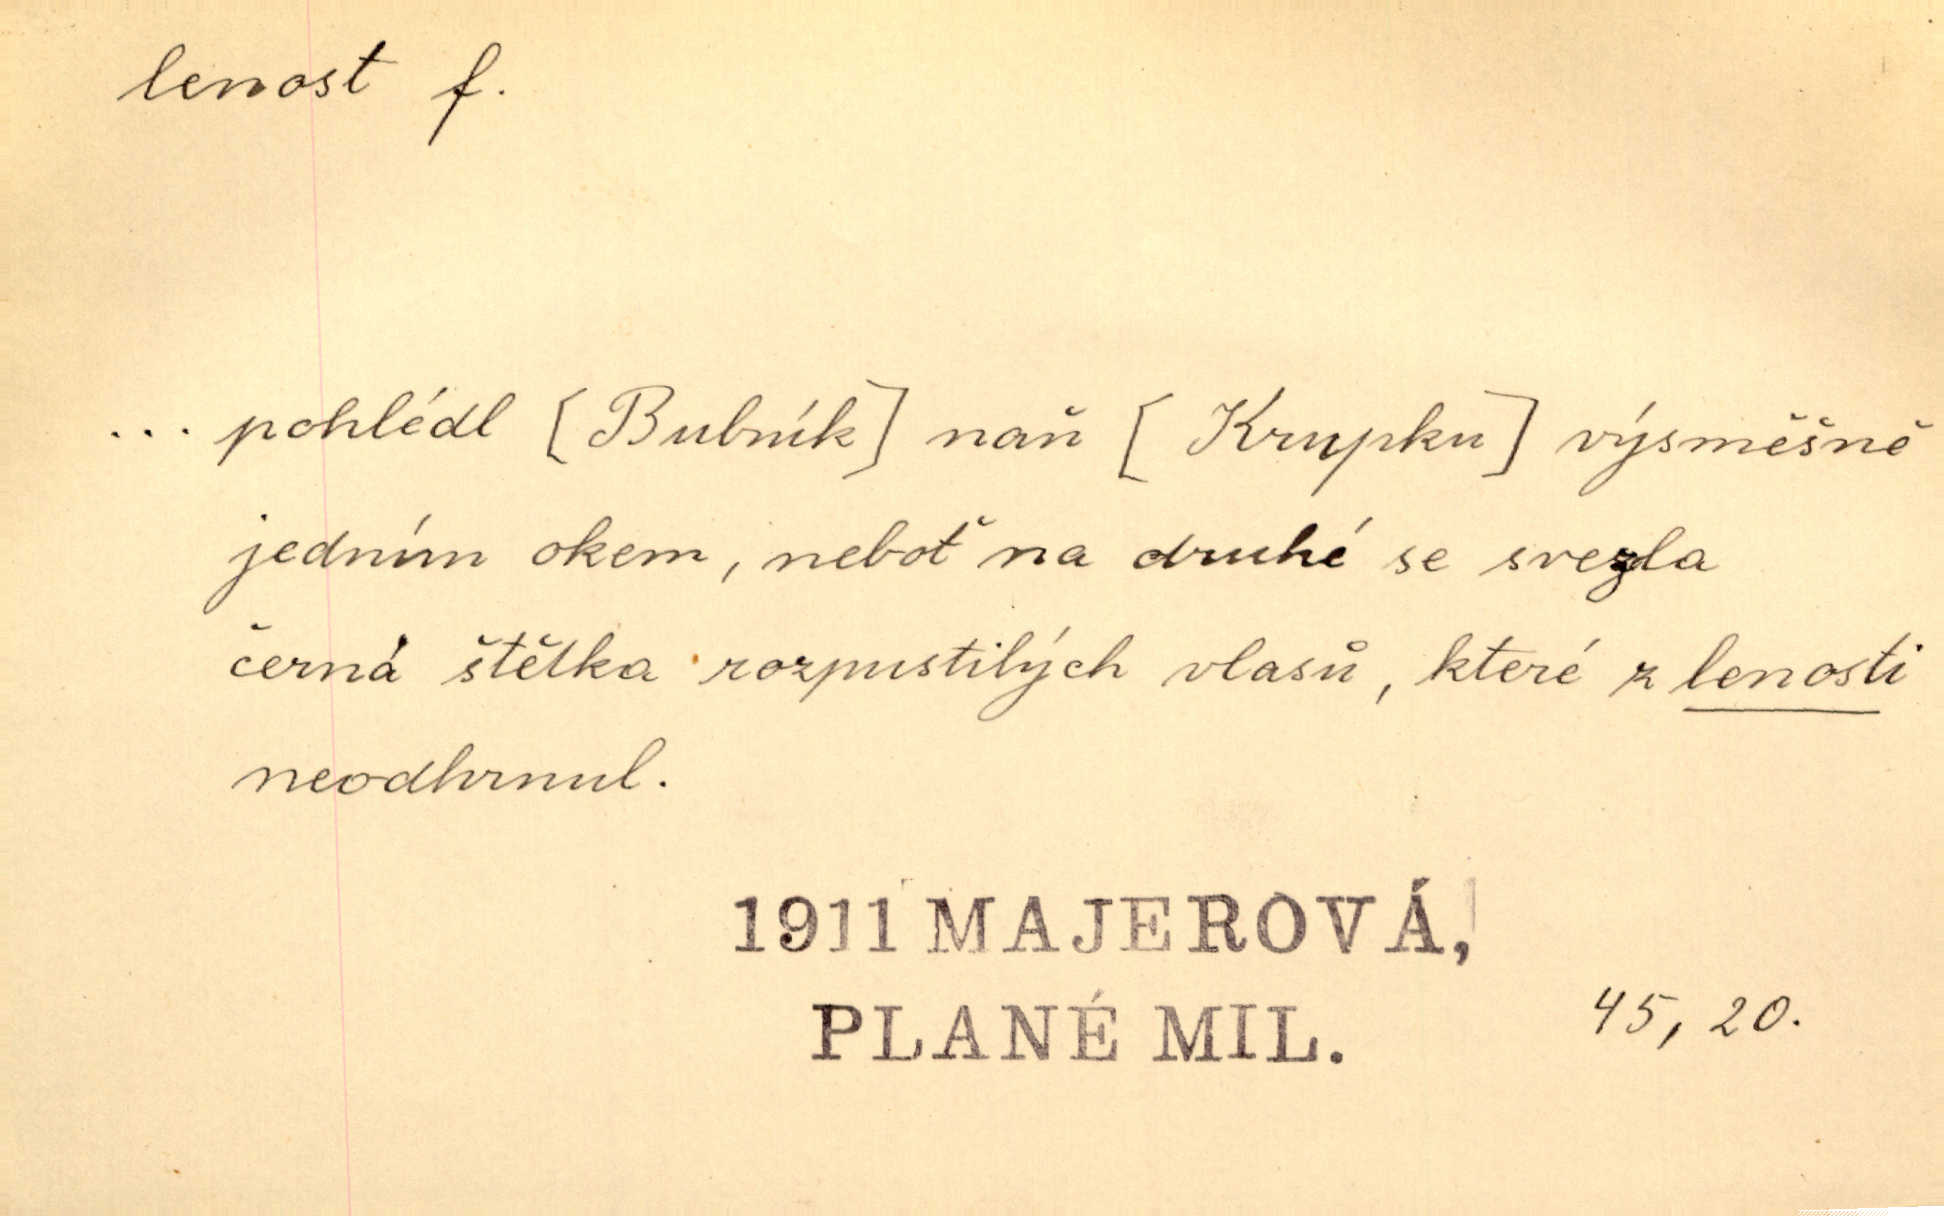 lenost f.
... pohlédl [Bubník] naň [Krupku] výsměšně
jedním okem, neboť na druhé se svezla
černá štětka rozpustilých vlasů, které z lenosti
neodhrnul.
1911 MAJEROVÁ,
PLANÉ MIL.
45, 20.